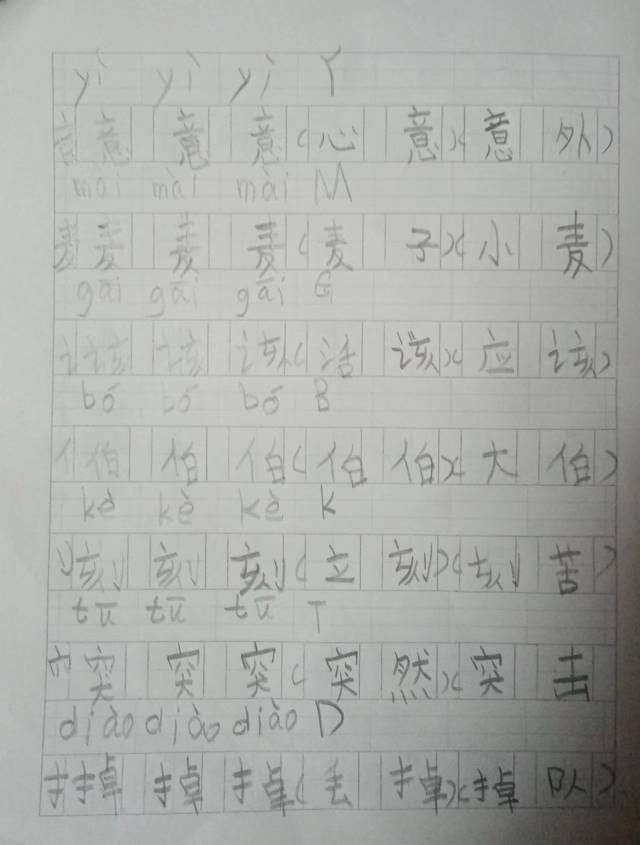 yì yì yì Y
意 意 意 意(心 意)(意 外)
mài mài mài M
麦 麦 麦 麦(麦 子)(小 麦)
gāi gāi gāi G
讠 该 该 该(活 该)(应 该)
bó bó bó B
亻 伯 伯 伯(伯 伯)(大 伯)
kè kè kè K
刂 刻 刻 刻(立 刻)(刻 苦)
tū tū tū T
穴 突 突 突(突 然)(突 击)
diào diào diào D
扌 掉 掉 掉(丢 掉)(掉 队)